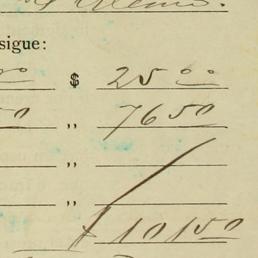 sigue:
00 $ 25 00
50 ,, 76 50
,,
,,
$ 101 50